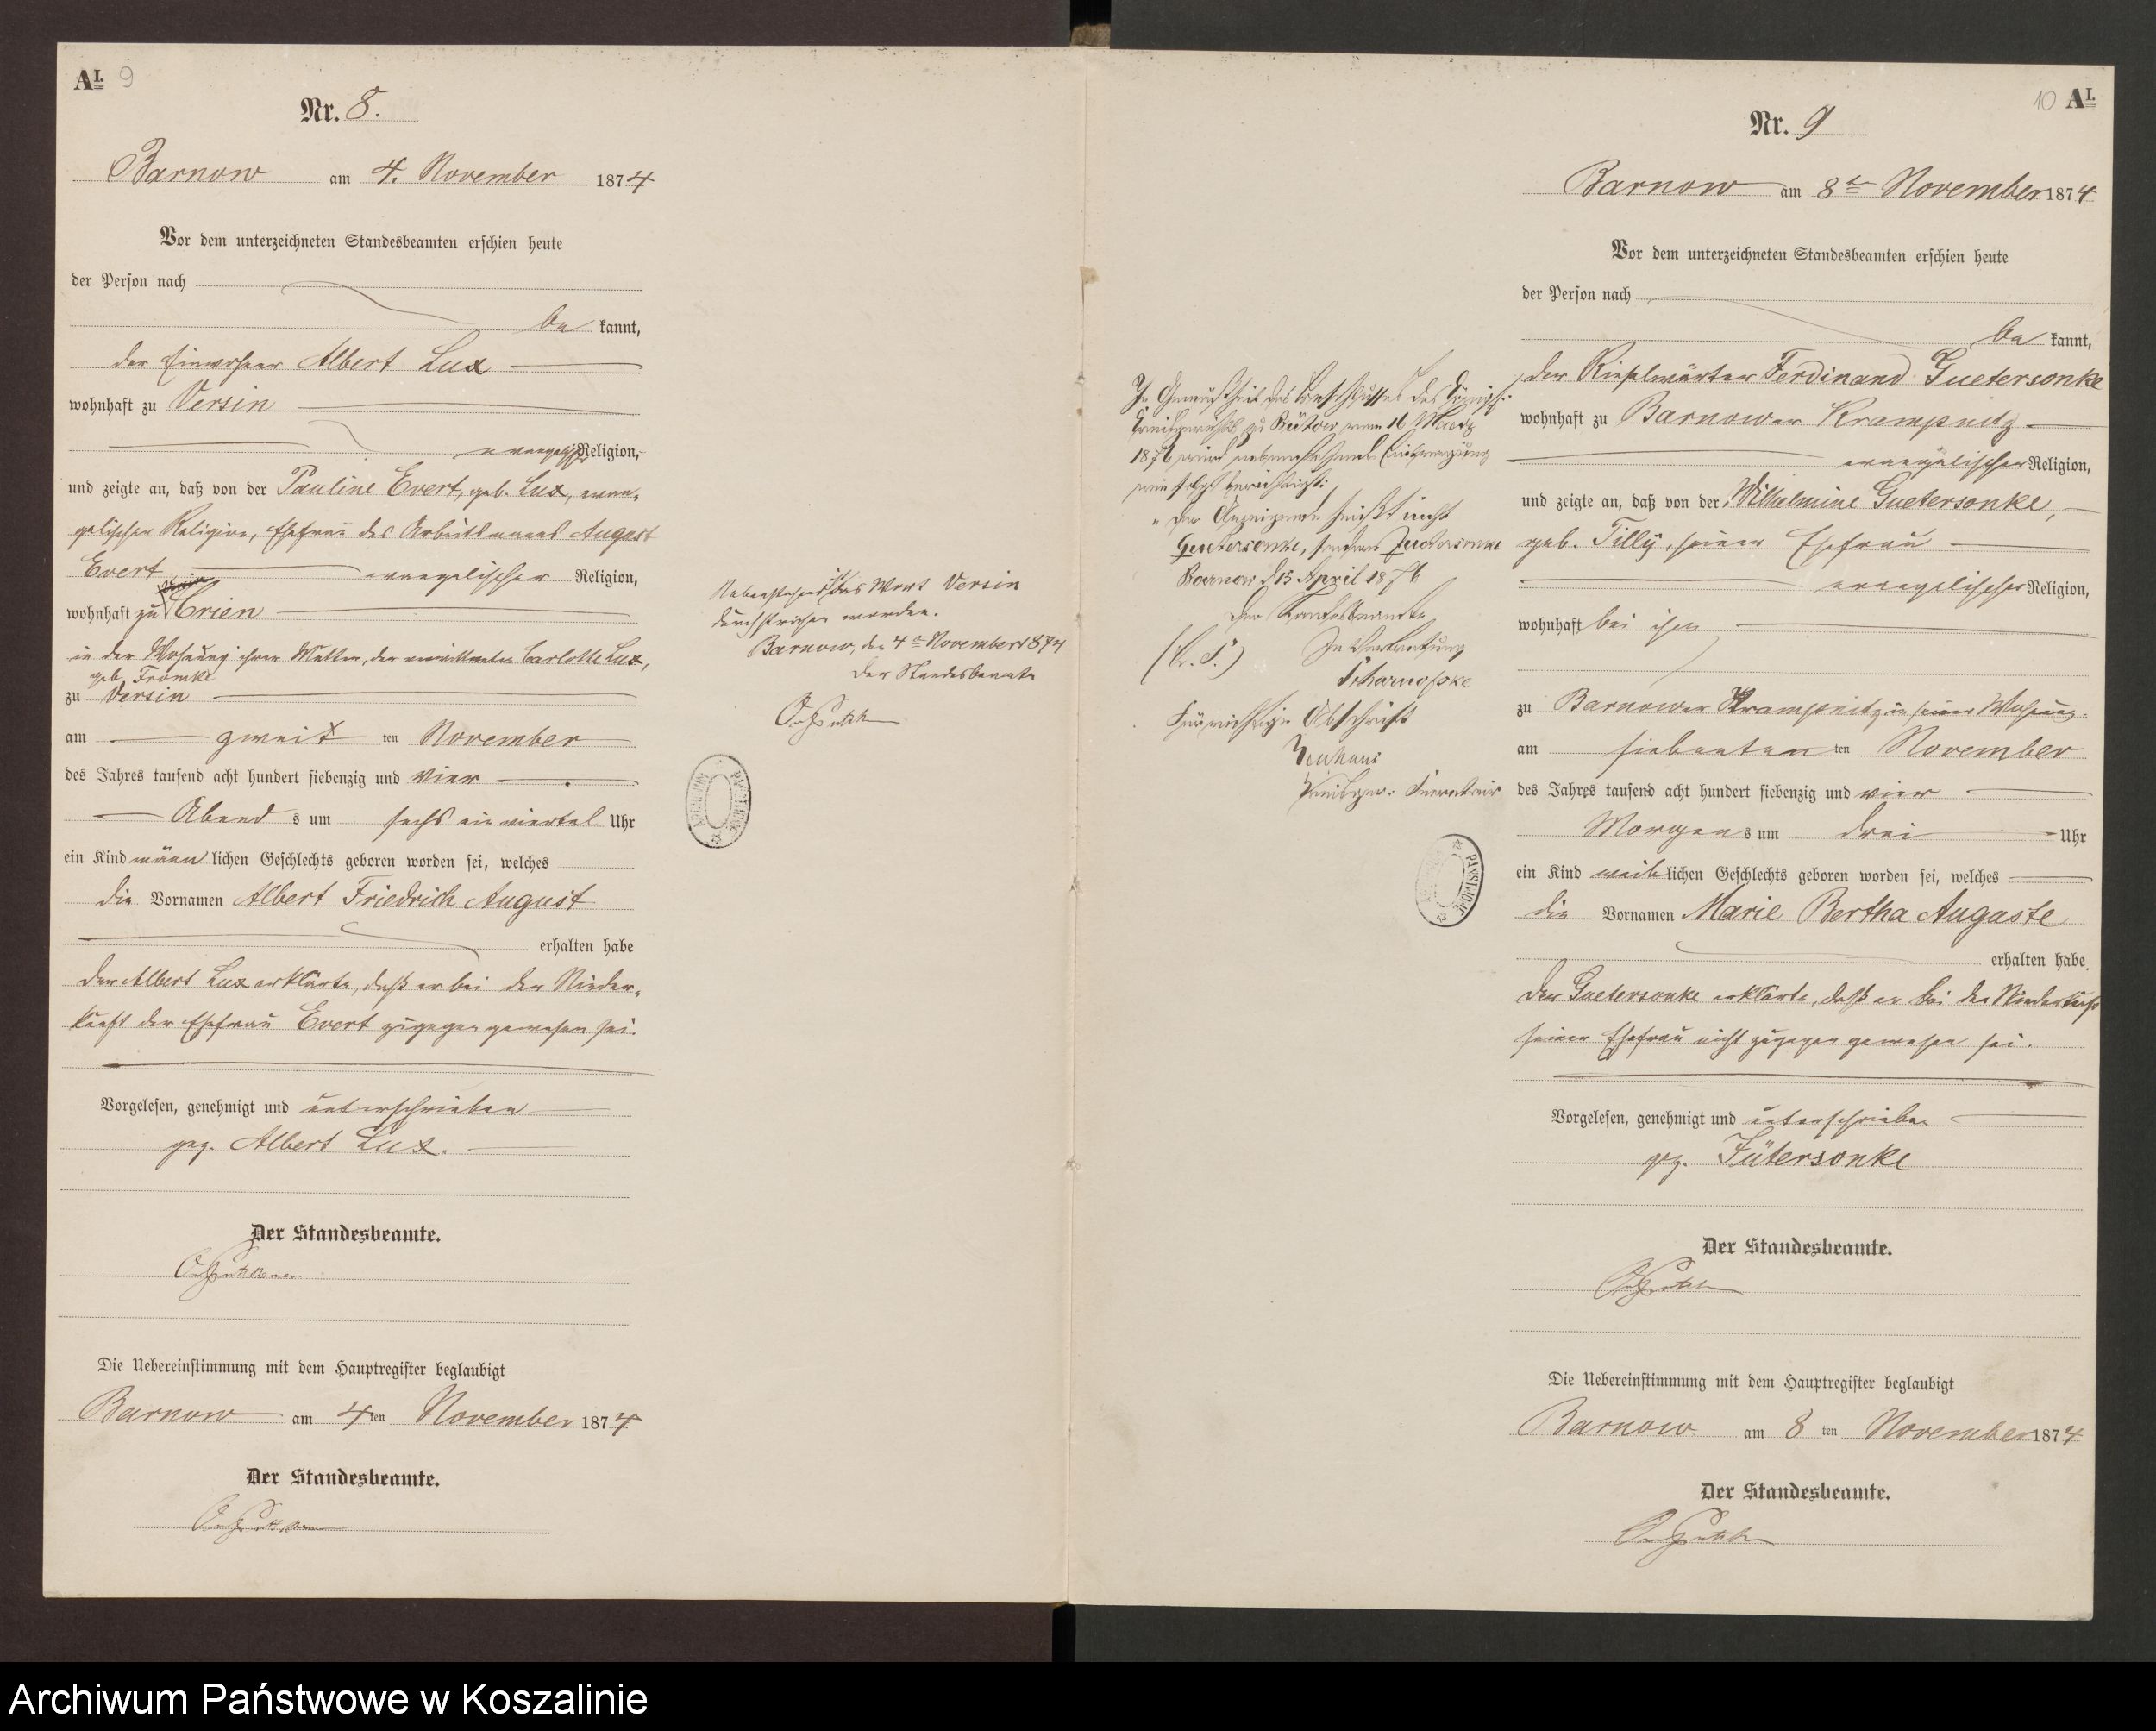 A I. 9
Nr. 8.
Barnow am 4. November 1874
Vor dem unterzeichneten Standesbeamten erschien heute
der Person nach
be kannt,
der Einwohner Albert Lux
wohnhaft zu Versin
evangelischer Religion,
und zeigte an, daß von der Pauline Evert, geb. Lux, evan-
gelischer Religion, Ehefrau des Arbeitsmannes August
Evert evangelischer Religion,
wohnhaft zu Crien
in der Wohnung ihrer Mutter, der verwittweten Carlotte Lux,
geb. Fromke
zu Versin
am zweit ten November
des Jahres tausend acht hundert siebenzig und vier
Abend s um sechs ein viertel Uhr
ein Kind männ lichen Geschlechts geboren worden sei, welches
die Vornamen Albert Friedrich August
erhalten habe
Der Albert Lux erklärte, daß er bei der Nieder-
kunft der Ehefrau Evert zugegen gewesen sei.
Vorgelesen, genehmigt und unterschrieben
gez. Albert Lux.
Der Standesbeamte.
Die Uebereinstimmung mit dem Hauptregister beglaubigt
Barnow am 4 ten November 1874
Der Standesbeamte.
Nebenstehend ist das Wort Versin
durchstrichen worden.
Barnow, den 4ten November 1874
Der Standesbeamte
10 A I.
Nr. 9
Barnow am 8ten November 1874
Vor dem unterzeichneten Standesbeamten erschien heute
der Person nach
be kannt,
der Rieselwärter Ferdinand Guetersonke
wohnhaft zu Barnower Krampnitz
evangelischer Religion,
und zeigte an, daß von der Wilhelmine Guetersonke,
geb. Tilly, seiner Ehefrau
evangelischer Religion,
wohnhaft bei ihm
zu Barnower Krampnitz in seiner Wohnung
am siebenten ten November
des Jahres tausend acht hundert siebenzig und vier
Morgens s um drei Uhr
ein Kind weib lichen Geschlechts geboren worden sei, welches
die Vornamen Marie Bertha Auguste
erhalten habe.
Der Guetersonke erklärte, daß er bei der Niederkunft
seiner Ehefrau nicht zugegen gewesen sei.
Vorgelesen, genehmigt und unterschrieben
gez. Jütersonke
Der Standesbeamte.
Die Uebereinstimmung mit dem Hauptregister beglaubigt
Barnow am 8 ten November 1874
Der Standesbeamte.
In Gemäßheit des Beschlusses des Königl.
Kreisgerichts zu Bütow vom 16 März
1876 wird nebenstehende Eintragung
wie folgt berichtigt:
"Der Anzeigende heißt nicht
Guetersonke, sondern Juetersonke
Barnow d 13 April 1876
Der Standesbeamte
(L. S.) In Vertretung
Für richtige Abschrift
Neuhaus
Kreisger. Secretair
Archiwum Państwowe w Koszalinie